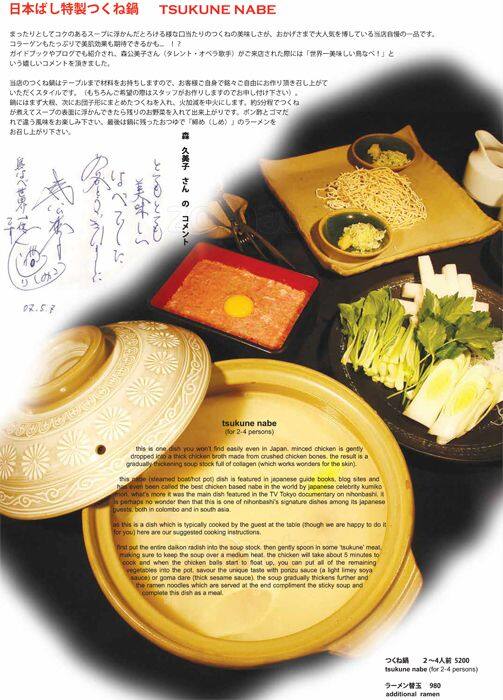 日本ばし特製つくね鍋 TSUKUNE NABE
まったりとしてコクのあるスープに浮かんだとろける様な口当たりのつくねの美味しさが、おかげさまで大人気を博している当店自慢の一品です。
コラーゲンもたっぷりで美肌効果も期待できるかも… ！？
ガイドブックやブログでも紹介され、森公美子さん（タレント・オペラ歌手）がご来店された際には「世界一美味しい鳥なべ！」と
いう嬉しいコメントを頂きました。
当店のつくね鍋はテーブルまで材料をお持ちしますので、お客様ご自身で銘々ご自由にお作り頂き召し上がて
いただくスタイルです。（もちろんご希望の際はスタッフがお作りしますのでお申し付け下さい）。
鍋にはまず大根、次にお団子形にまとめたつくねを入れ、火加減を中火にします。約5分程でつくね
が煮えてスープの表面に浮かんできたら残りのお野菜を入れて出来上がりです。ポン酢とゴマだ
れで違う風味をお楽しみ下さい。最後は鍋に残ったおつゆで「締め（しめ）」のラーメンを
お召し上がり下さい。
森 久美子 さん の コメント
とってもとっても
美味しい
07.5.7
tsukune nabe
(for 2-4 persons)
this is one dish you won't find easily even in Japan. minced chicken is gently
dropped into a thick chicken broth made from crushed chicken bones. the result is a
gradually thickening soup stock full of collagen (which works wonders for the skin).
this nabe (steamed boat/hot pot) dish is featured in japanese guide books, blog sites and
has even been called the best chicken based nabe in the world by japanese celebrity kumiko
mori. what's more it was the main dish featured in the TV Tokyo documentary on nihonbashi. it
is perhaps no wonder then that this is one of nihonbashi's signature dishes among its japanese
guests. both in colombo and in south asia.
as this is a dish which is typically cooked by the guest at the table (though we are happy to do it
for you) here are our suggested cooking instructions.
first put the entire daikon radish into the soup stock. then gently spoon in some 'tsukune' meat,
making sure to keep the soup over a medium heat. the chicken will take about 5 minutes to
cook and when the chicken balls start to float up, you can put all of the remaining
vegetables into the pot. savour the unique taste with ponzu sauce (a light limey soya
sauce) or goma dare (thick sesame sauce). the soup gradually thickens further and
the ramen noodles which are served at the end compliment the sticky soup and
complete this dish as a meal.
つくね鍋 2〜4人前 5200
tsukune nabe (for 2-4 persons)
ラーメン替玉 980
additional ramen